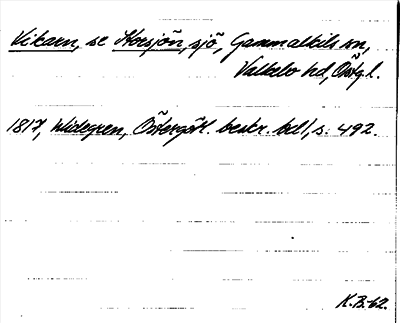 Vikarn, se Korsjön, sjö, Gammalkils sn,
Valkebo hd, Östgl.
1817, Widegren, Östergötl. beskr. bd 1, s. 492.
K.B.-62.